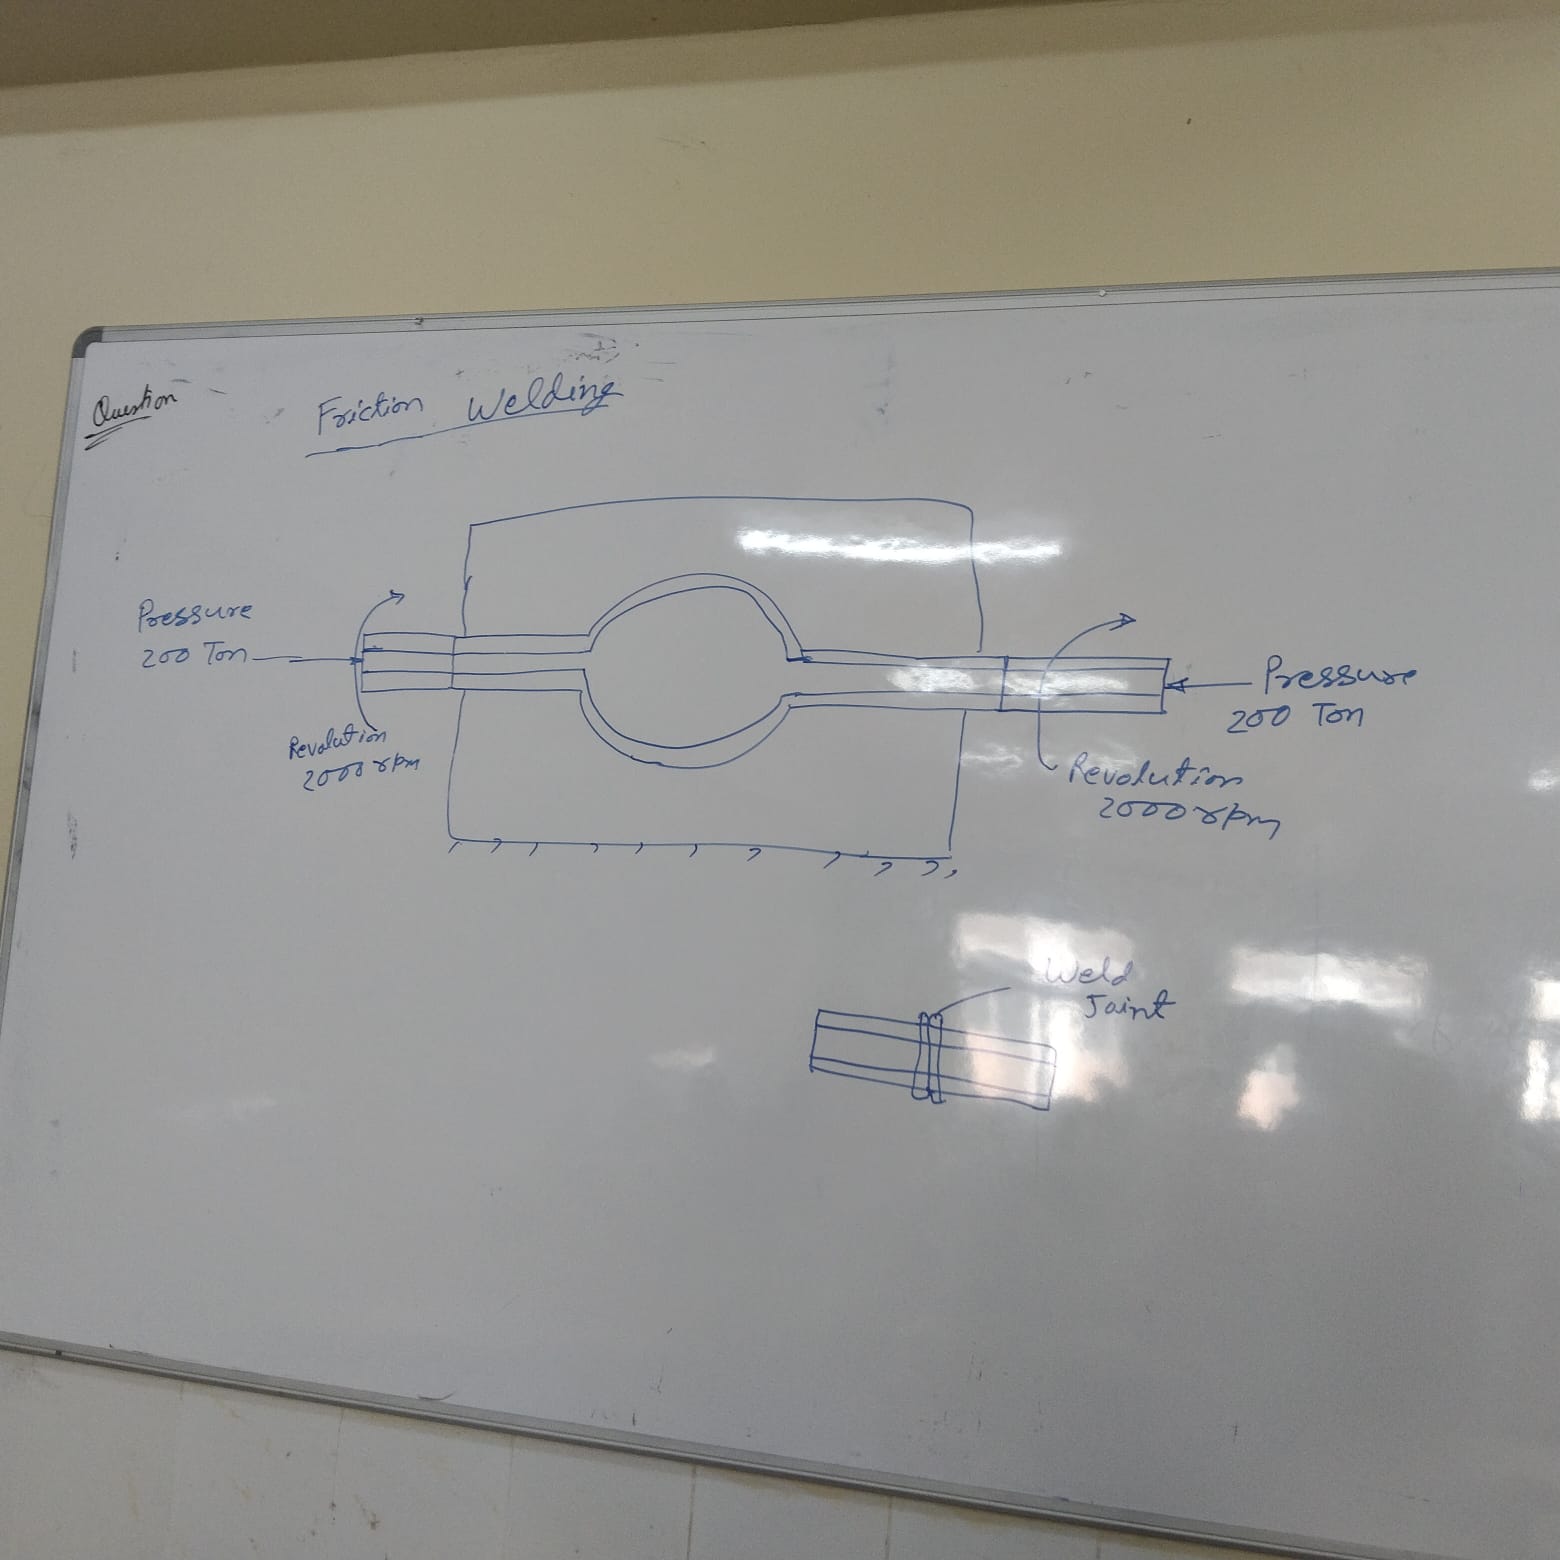 Question
Friction Welding
Pressure
200 Ton
Revolution
2000 rpm
Pressure
200 Ton
Revolution
2000 rpm
Weld
Joint